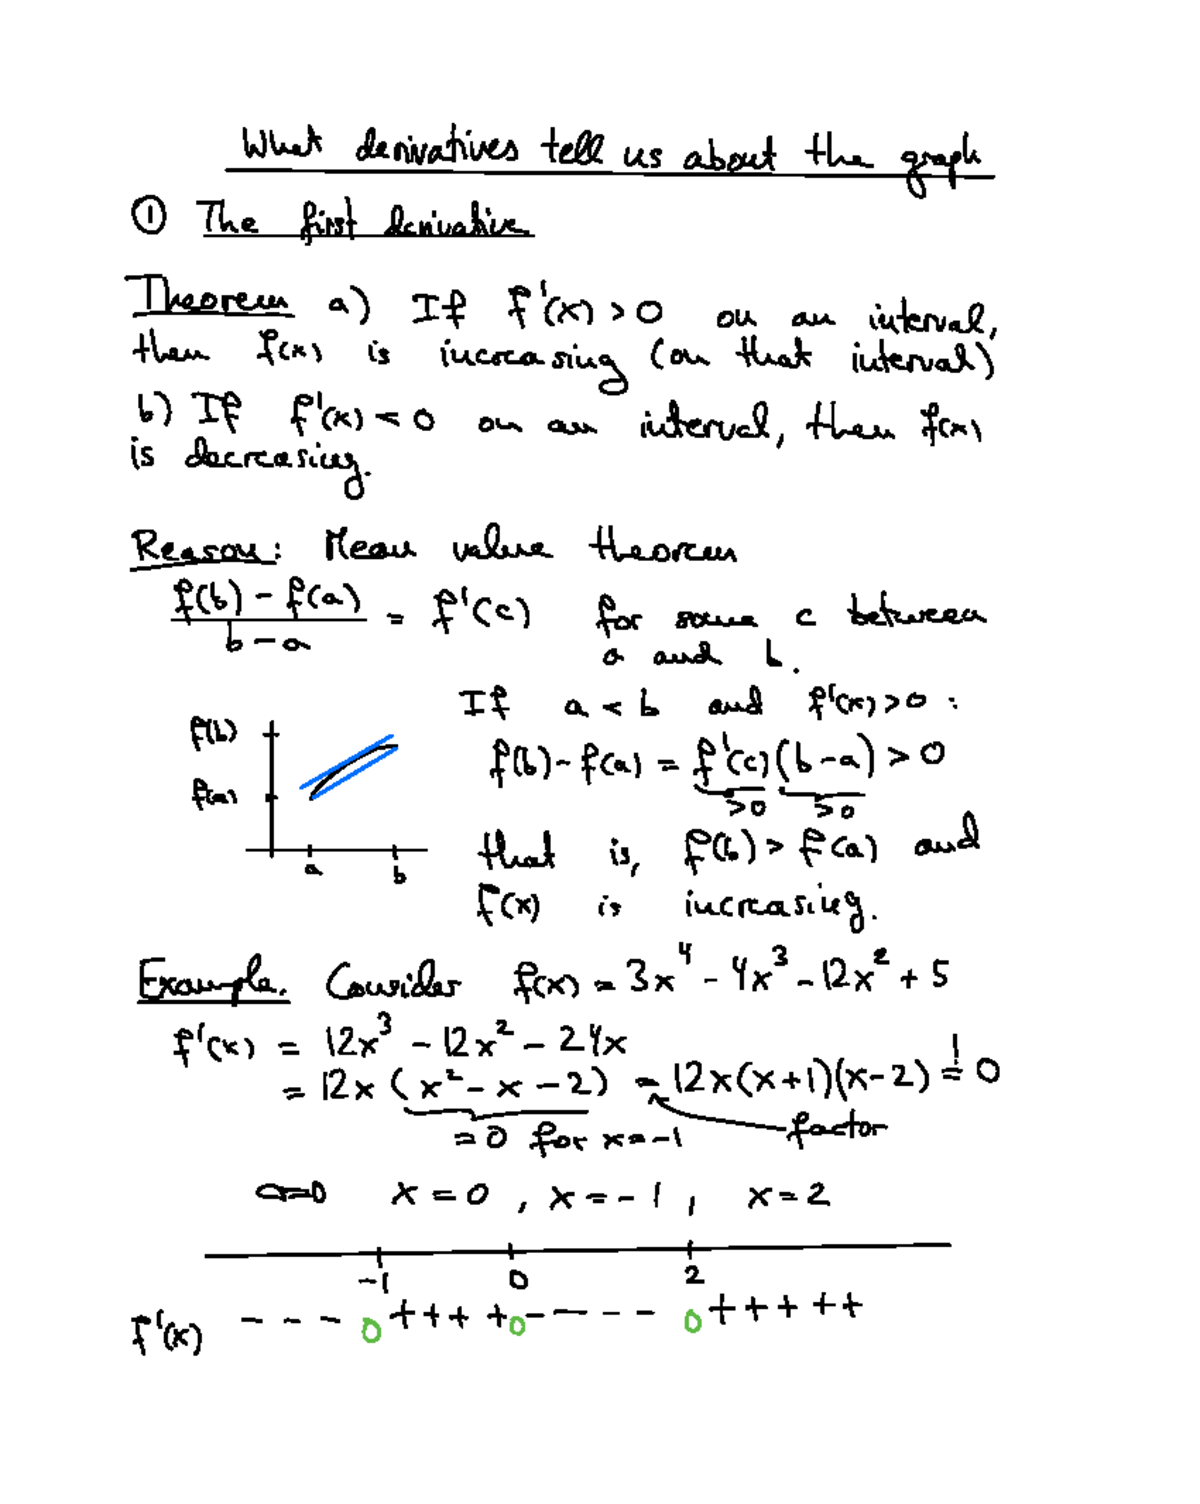 What derivatives tell us about the graph
① The first derivative
Theorem a) If f'(x) > 0 on an interval,
then f(x) is increasing (on that interval)
b) If f'(x) < 0 on an interval, then f(x)
is decreasing.
Reason: Mean value theorem
f(b) - f(a)
b - a
= f'(c) for some c between
a and b.
If a < b and f'(x) > 0 :
f(b)
f(b) - f(a) = f'(c)(b-a) > 0
f(a)
>0 >0
that is, f(b) > f(a) and
a b
f(x) is increasing.
Example. Consider f(x) = 3x⁴ - 4x³ - 12x² + 5
f'(x) = 12x³ - 12x² - 24x
= 12x (x² - x - 2) = 12x(x+1)(x-2) = 0
!
= 0 for x = -1
factor
x = 0 , x = -1 , x = 2
-1 0 2
f'(x) - - - 0 + + + + 0 - - - - 0 + + + + +